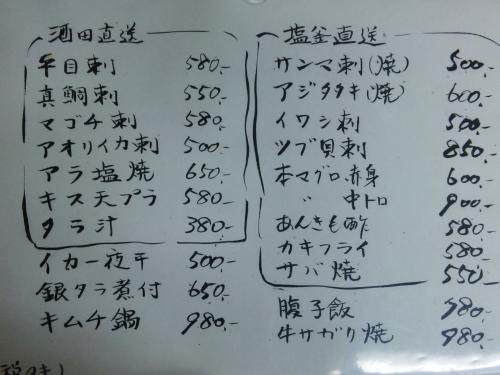 酒田直送
平目刺 580.-
真鯛刺 550.-
マゴチ刺 580.-
アオリイカ刺 500.-
アラ塩焼 650.-
キス天プラ 580.-
タラ汁 380.-
イカ一夜干 500.-
銀タラ煮付 650.-
キムチ鍋 980.-
塩釜直送
サンマ刺(焼) 500.-
アジタタキ(焼) 600.-
イワシ刺 500.-
ツブ貝刺 850.-
本マグロ赤身 600.-
〃 中トロ 900.-
あんきも酢 580.-
カキフライ 580.-
サバ焼 550.-
腹子飯 980.-
牛サガリ焼 980.-